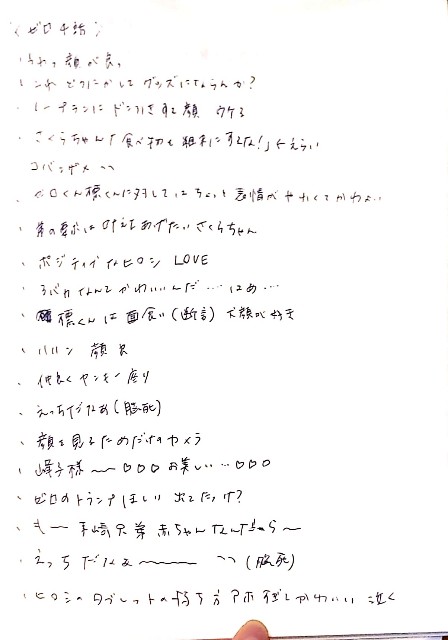 〈ゼロ4話〉
・うわっ顔が良っ
・これどうにかしてグッズにならんか?
・ノープランにドン引きする顔 ウケる
・さくらちゃん「食べ物を粗末にするな!」←えらい
コバンザメ〜〜
・ゼロくん穂くんに対してはちょっと表情がやわくてかわよい
・弟の要求は叶えてあげたいさくらちゃん
・ポジティブなヒロシ LOVE
・うバカなんてかわいいんだ……はぁ…
・穂くんは面食い(断言)犬顔が好き
・ハハン 顔良
・仲良くヤンキー座り
・えっちだなぁ(脳死)
・顔を見るためだけのカメラ
・峰子様〜〜♡♡♡お美しい…♡♡♡
・ゼロのトランプほしい 出てたっけ?
・も〜手崎兄弟赤ちゃんなんだから〜
・えっちだなぁ〜〜〜〜〜(脳死)
・ヒロシのタブレットの持ち方アホっぽくてかわいい 泣く